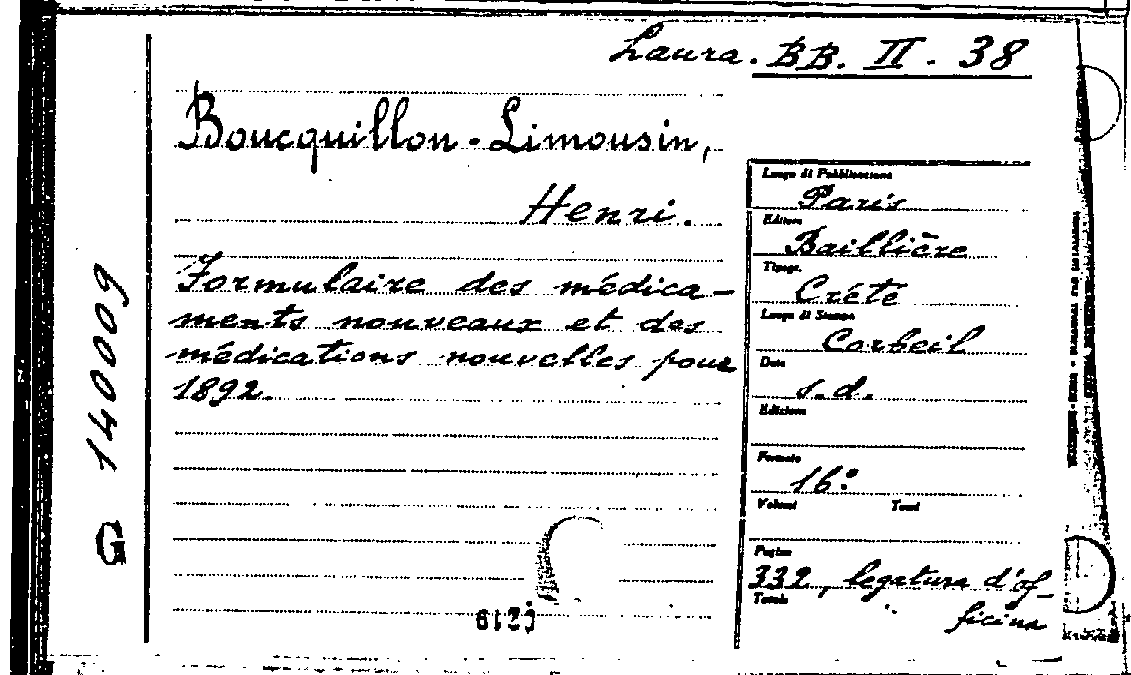 Laura. BB. II. 38
Boucquillon-Limousin,
Henri.
Formulaire des médica-
ments nouveaux et des
médications nouvelles pour
1892.
G 140009
Luogo di Pubblicazione
Paris
Editore
Baillière
Tipogr.
Crété
Luogo di Stampa
Corbeil
Data
s.d.
Edizione
Formato
16°
Volumi Tomi
Pagine
332, legatura d'of-
ficina
Tavole